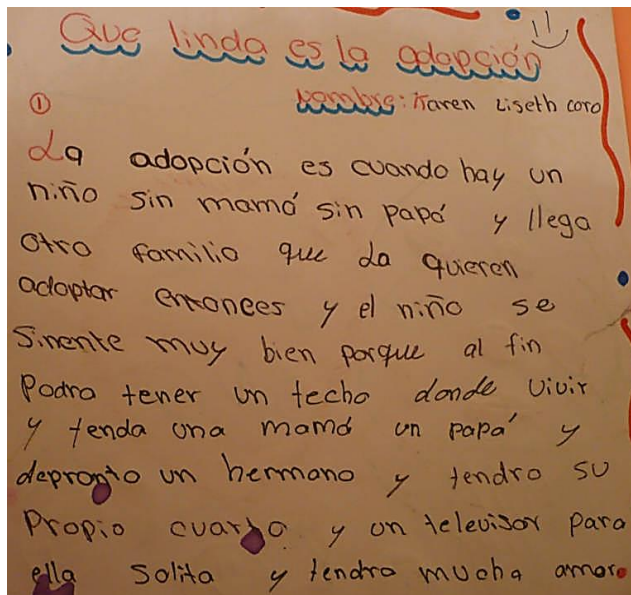 Que linda es la adopción
Nombre: Karen Liseth coro
①
La adopción es cuando hay un
niño sin mamá sin papá y llega
otro familio que la quieren
adoptar entonces y el niño se
sinente muy bien porque al fin
Podra tener un techo donde vivir
y tenda una mamá un papá y
depronto un hermano y tendro su
Propio cuarto y un televisor para
ella solita y tendra mucha amor.